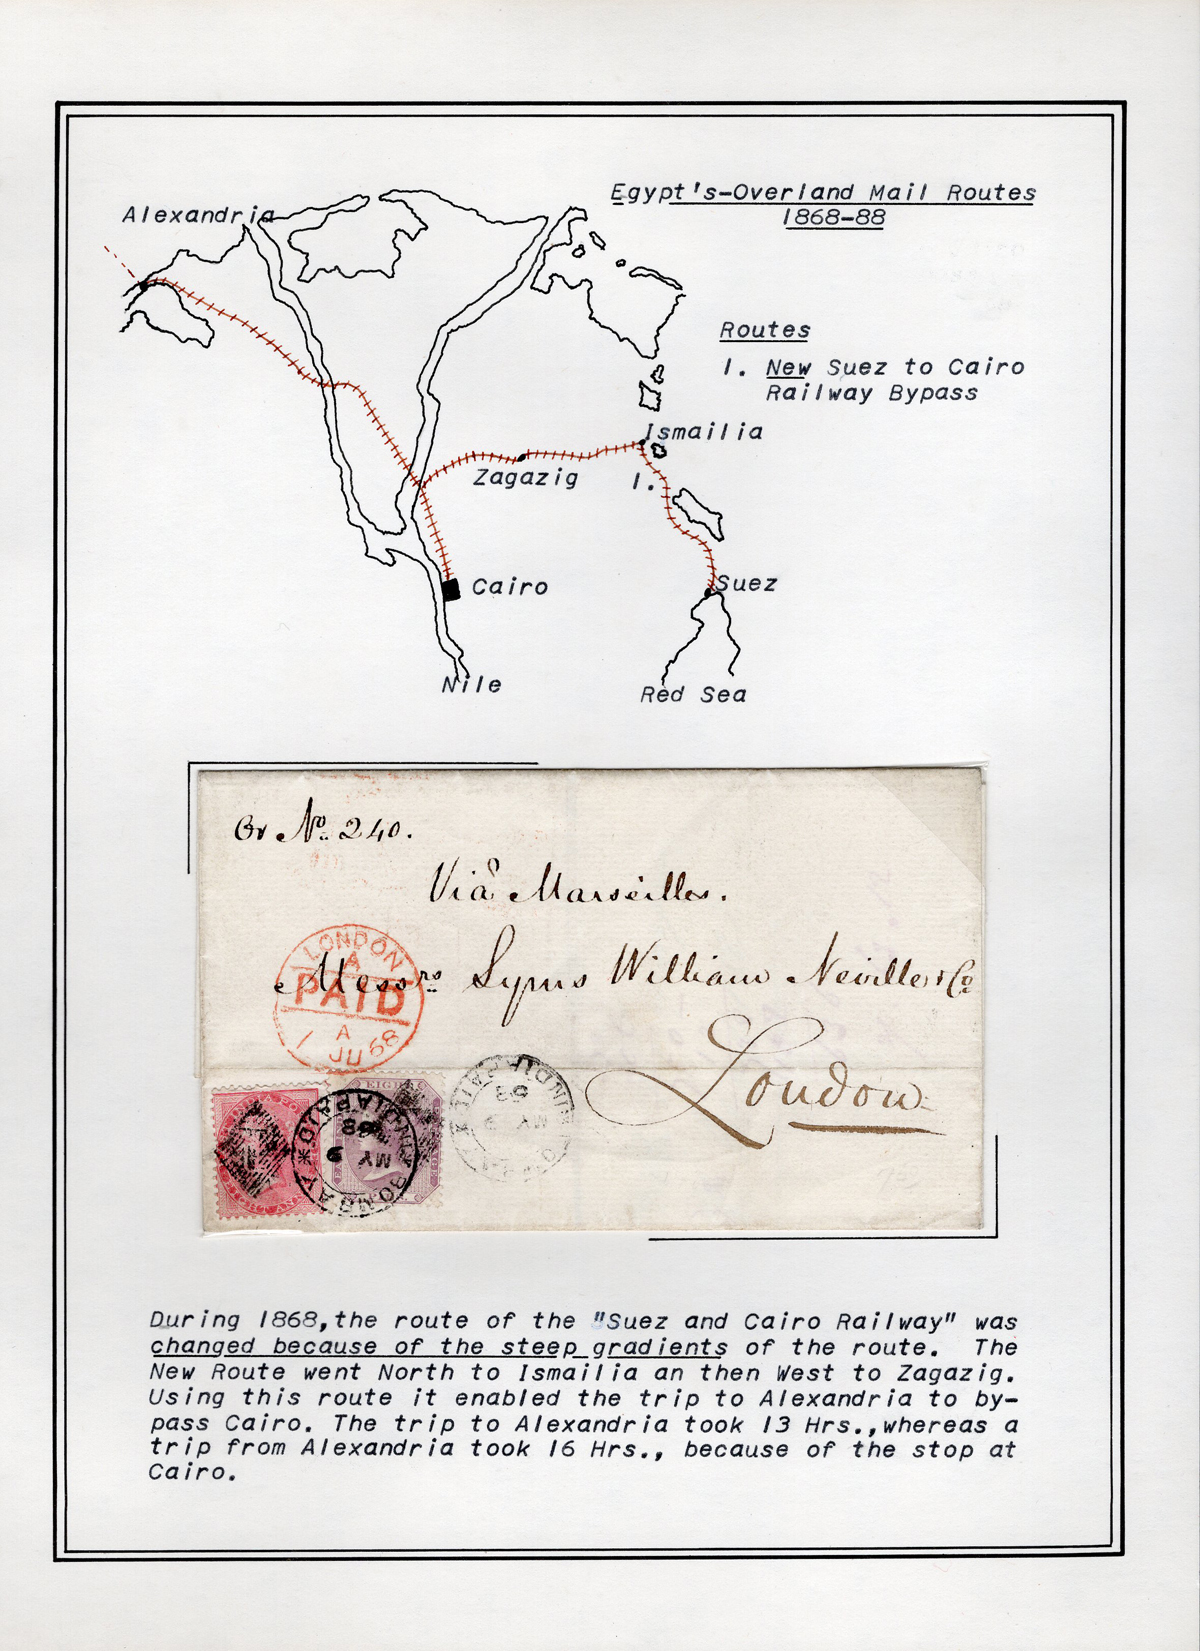 Egypt's-Overland Mail Routes
1868-88
Alexandria
Routes
1. New Suez to Cairo
Railway Bypass
Ismailia
Zagazig
1.
Cairo
Suez
Nile
Red Sea
No. 240.
Via Marseilles.
Messrs Syms William Neville & Co
London
LONDON
A
PAID
1 A
JU 68
EIGH
BOMBAY * INDIA PAID
MY 9
68
INDIA PAID
MY 9
During 1868, the route of the "Suez and Cairo Railway" was
changed because of the steep gradients of the route. The
New Route went North to Ismailia an then West to Zagazig.
Using this route it enabled the trip to Alexandria to by-
pass Cairo. The trip to Alexandria took 13 Hrs., whereas a
trip from Alexandria took 16 Hrs., because of the stop at
Cairo.